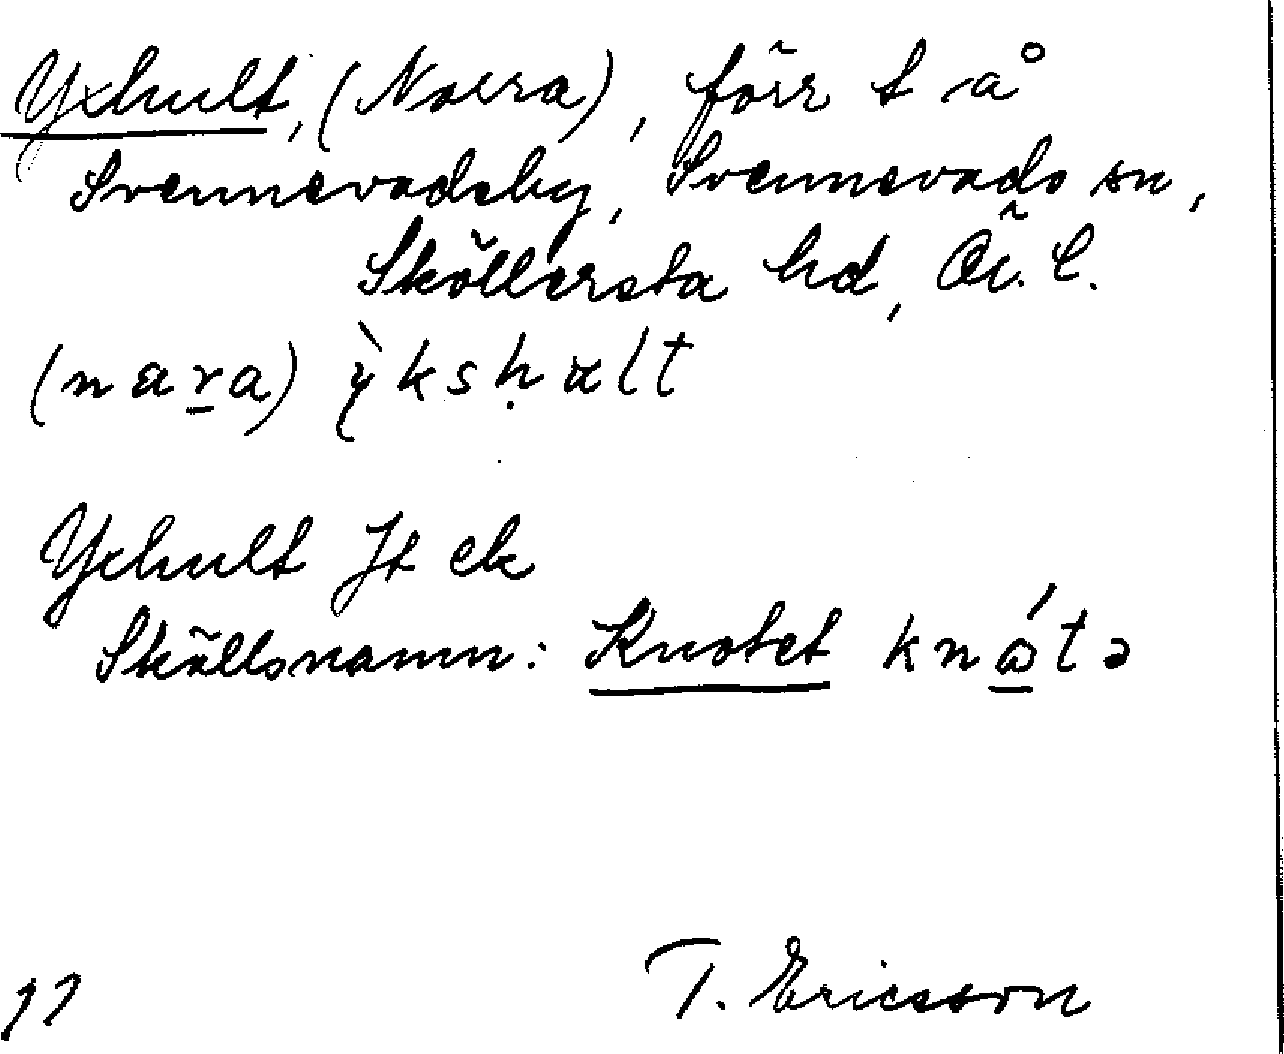 Yxhult, (Norra), förr t å
Svennevadsby, Svennevads sn,
Sköllersta hd, Ör. l.
(nara) ỳksḥult
Yxhult Jt ek
Skällsnamn: Knotet knåtə
T. Ericsson